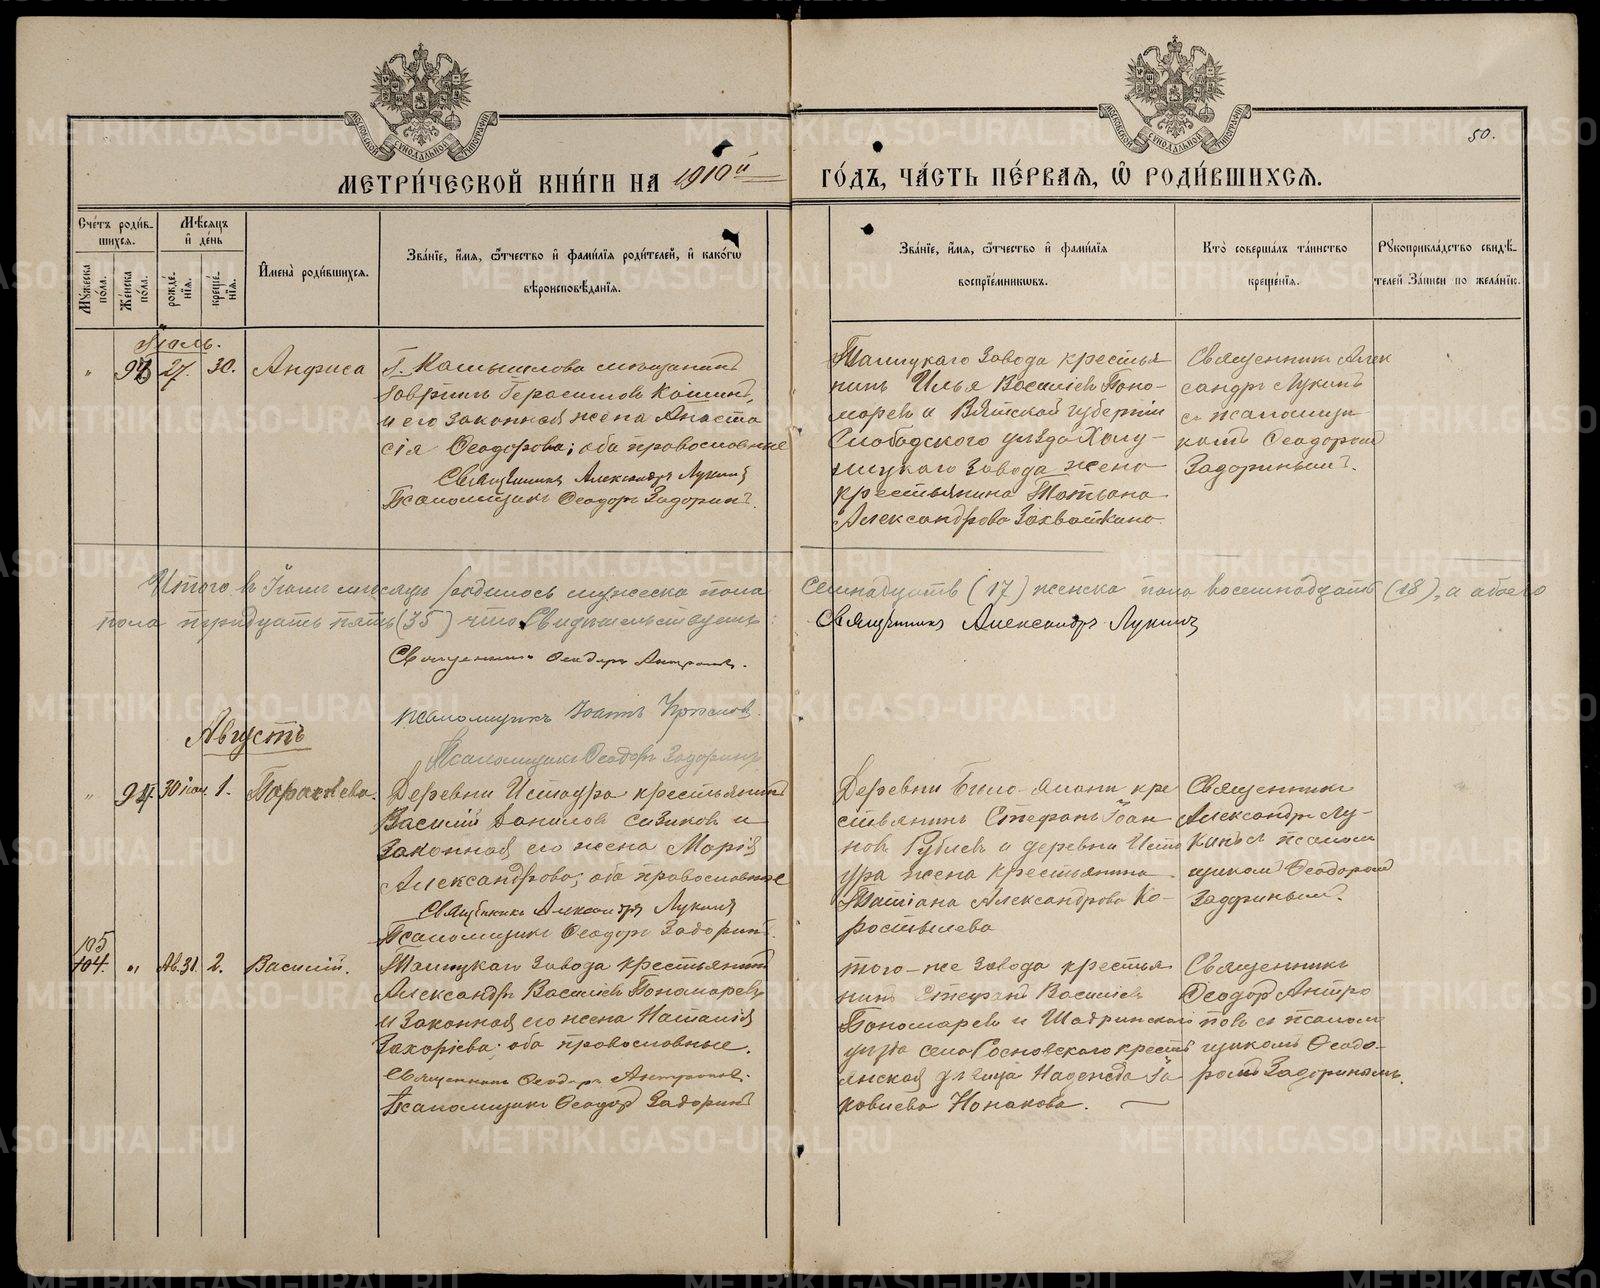 50.
МЕТРИ́ЧЕСКОЙ КНИ́ГИ НА 1910й ГО́ДЪ, ЧА́СТЬ ПЕ́РВАЯ, Ѿ РОДИ́ВШИХСЯ.
Сче́тъ роди́в-
шихся.
Мѣ́сяцъ
и де́нь
Му́жеска
по́ла.
Же́нска
по́ла.
рожде́-
нїя.
креще́-
нїя.
Имена̀ роди́вшихся.
Зва́нїе, и́мя, ѿтчество и фами́лїя роди́телей, и како́гѡ
вѣроисповѣ́данїя.
Зва́нїе, и́мя, ѿтчество и фами́лїя
воспрїе́мниковъ.
Кто̀ соверша́лъ та́инство
креще́нїя.
Рꙋкоприкла́дство свидѣ́-
телей за́писи по жела́нїю.
Іюль.
" 93 27. 30. Анфиса
г. Камышлова мѣщанинъ
Гавріилъ Герасимовъ Кашинъ,
и его законная жена Анаста
сія Ѳеодорова; оба православные
Священникъ Александръ Лукинъ
Псаломщикъ Ѳеодоръ Задоринъ.
Талицкаго завода крестья
нинъ Илья Василіевъ Поно-
маревъ и Вятской губерніи
Слободского уѣзда Холу-
ницкаго завода жена
крестьянина Татьяна
Александрова Захваткина
Священникъ Алек
сандръ Лукинъ
съ псаломщи
комъ Ѳеодоромъ
Задоринымъ.
Итого въ Іюлѣ мѣсяцѣ родилось мужеска пола семнадцать (17) женска пола восемнадцать (18), а обоего
пола тридцать пять (35) что свидѣтельствуемъ:
Священникъ Александръ Лукинъ
Священникъ Ѳеодоръ Антроповъ.
Псаломщикъ Іоаннъ
Псаломщикъ Ѳеодоръ Задоринъ
Августъ
" 94 30 іюл. 1. Параскева.
Деревни Истоура крестьянинъ
Василій Даниловъ Сизиковъ и
законная его жена Марія
Александрова; оба православные
Священникъ Александръ Лукинъ
Псаломщикъ Ѳеодоръ Задоринъ.
Деревни кре
стьянинъ Стефанъ Іоан
новъ Рублевъ и деревни Исто
ура жена крестьянина
Татіана Александрова Ко-
ростылева
Священникъ
Александръ Лу-
кинъ съ псалом
щикомъ Ѳеодоромъ
Задоринымъ.
105
104. " Ав. 31. 2. Василій.
Талицкаго завода крестьянинъ
Александръ Василіевъ Пономаревъ
и законная его жена Наталія
Захаріева; оба православные.
Священникъ Ѳеодоръ Антроповъ.
Псаломщикъ Ѳеодоръ Задоринъ
того-же завода крестья
нинъ Стефанъ Василіевъ
Пономаревъ и Шадринскаго
уѣзда села Сосновскаго кресть
янская дѣвица Надежда Іа
ковлева Конакова.
Священникъ
Ѳеодоръ Антро
повъ съ псалом
щикомъ Ѳеодо-
ромъ Задоринымъ.
METRIKI.GASO-URAL.RU